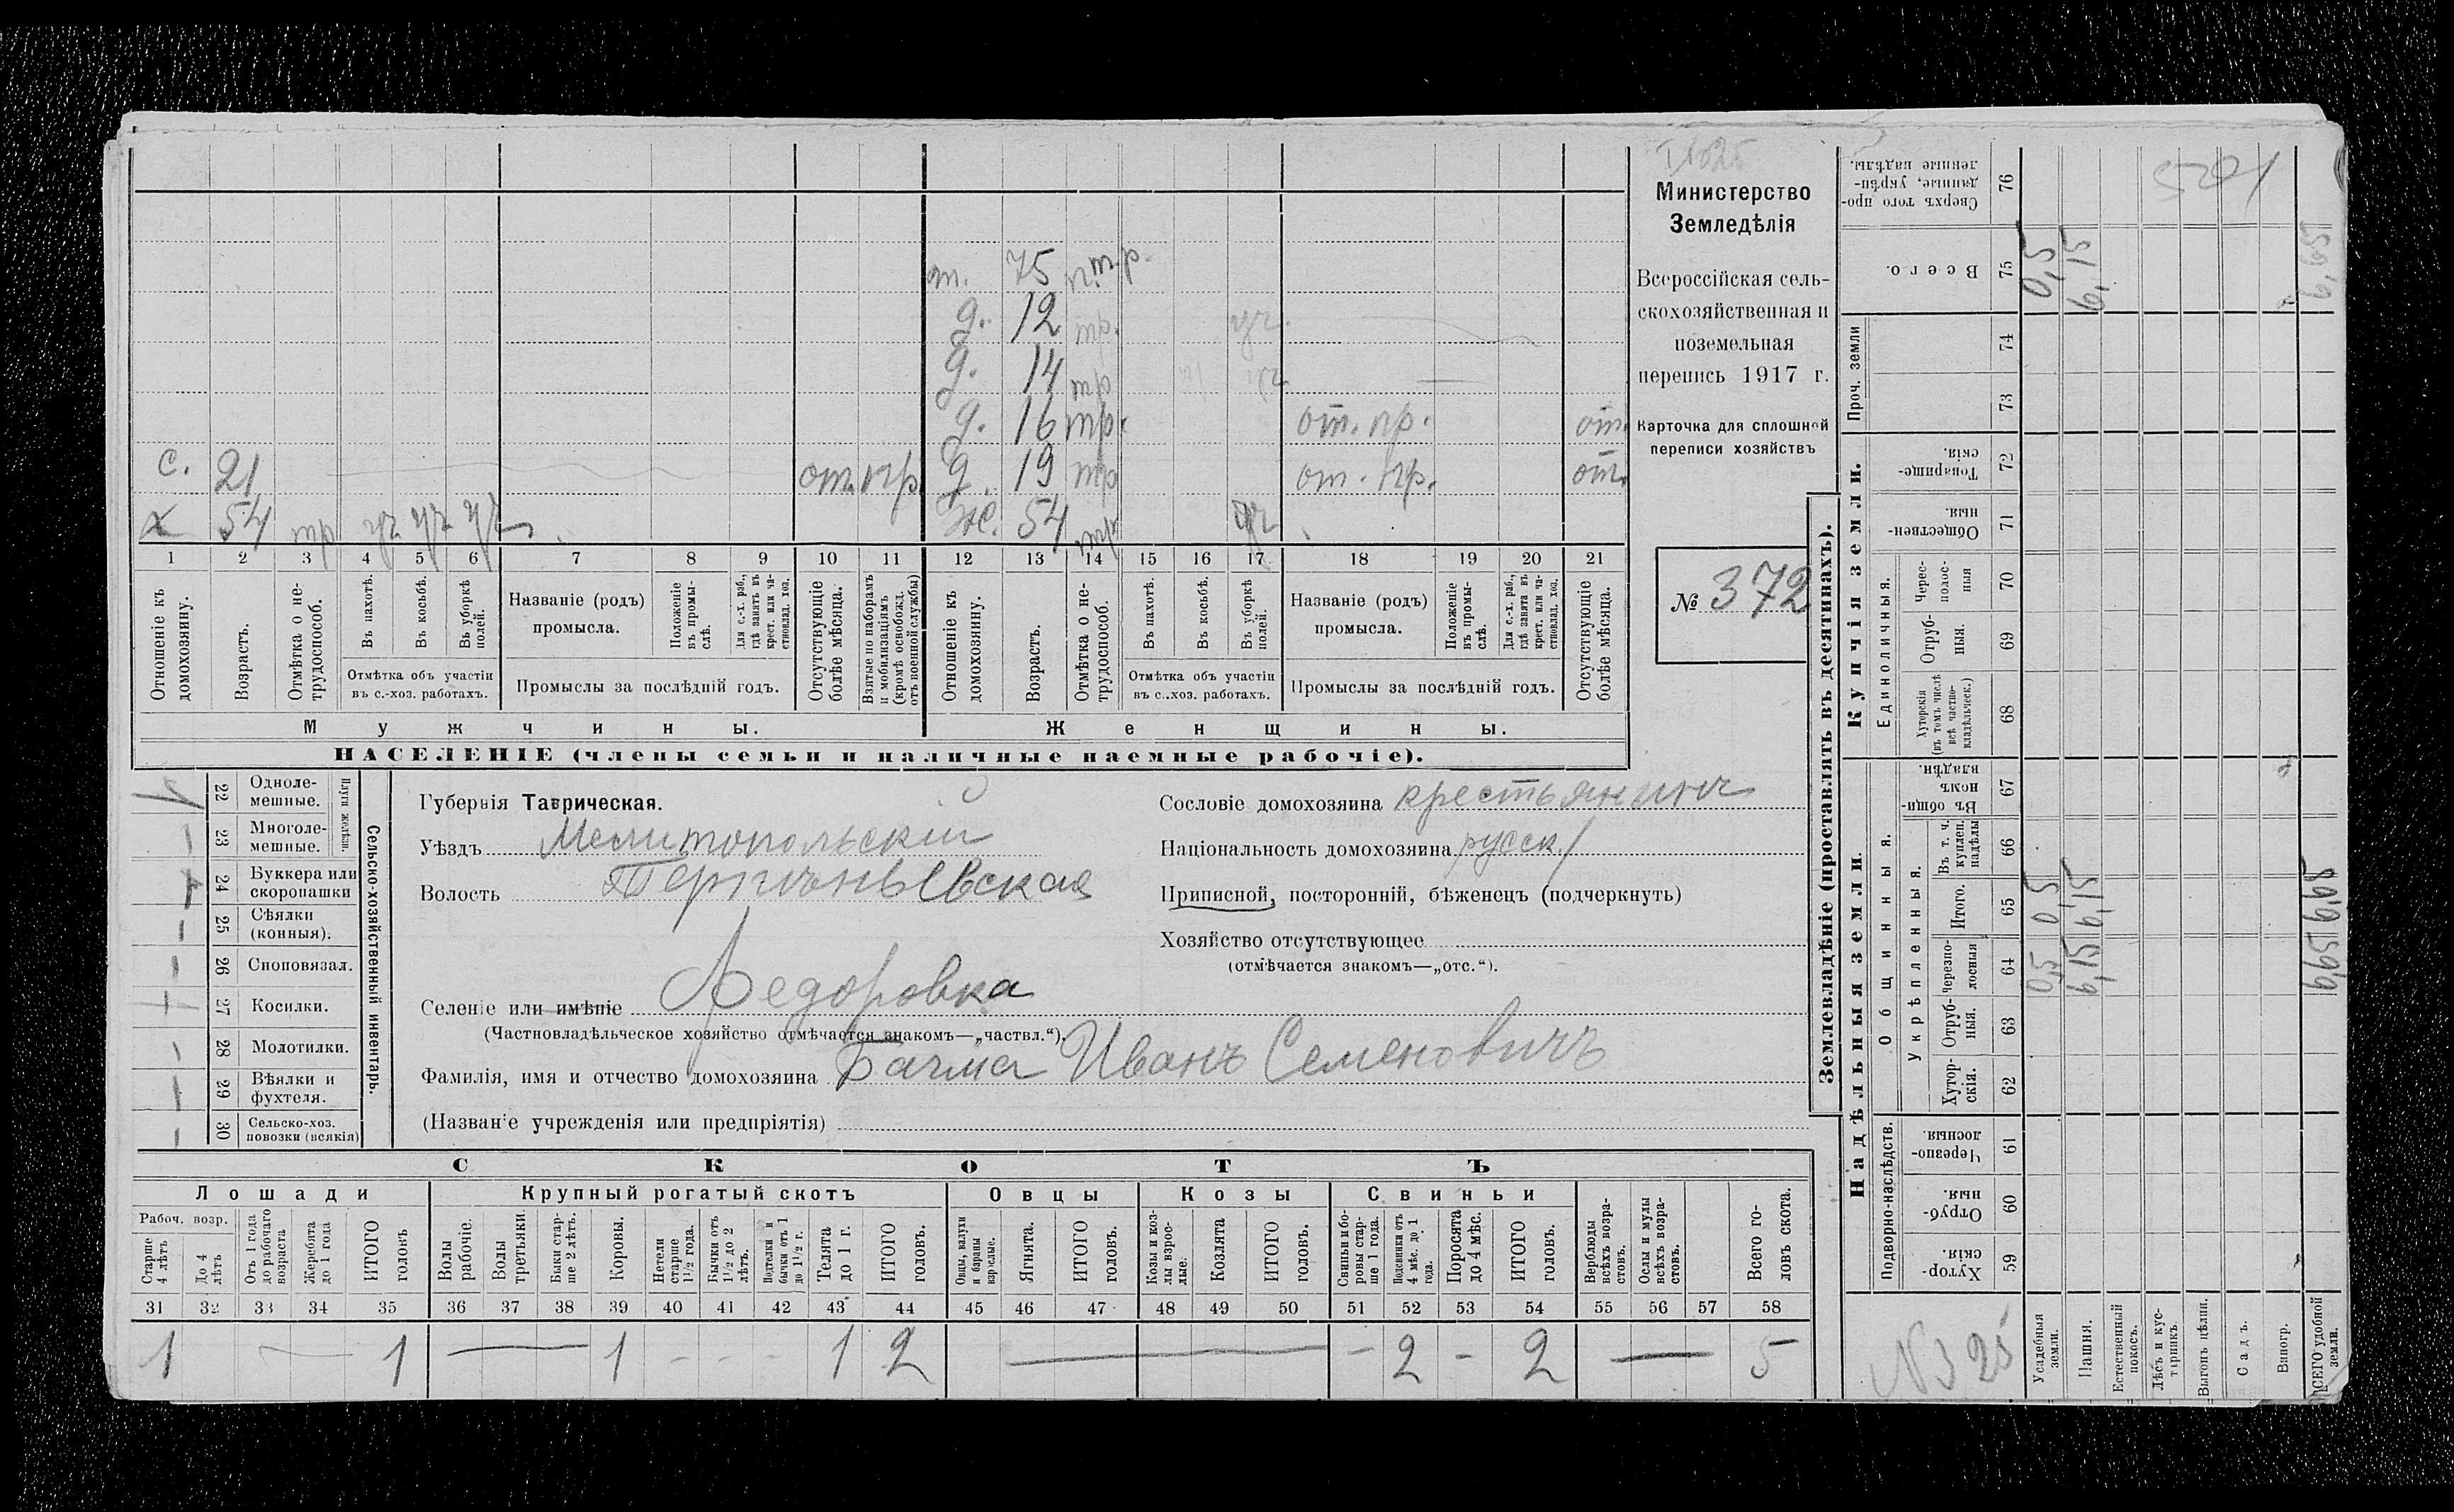 Министерство
Земледѣлія
Всероссійская сель-
скохозяйственная и
поземельная
перепись 1917 г.
Карточка для сплошной
переписи хозяйствъ
№ 372
т. 75
д. 12 уч.
д. 14
д. 16 от. пр. от.
с. 21 от. пр. д. 19 от. пр. от.
х 54 ж. 54
1 2 3 4 5 6 7 8 9 10 11 12 13 14 15 16 17 18 19 20 21
Отношеніе къ домохозяину.
Возрастъ.
Отмѣтка о не-трудоспособ.
Въ пахотѣ.
Въ косьбѣ.
Въ уборкѣ полей.
Отмѣтка объ участіи
въ с.-хоз. работахъ.
Названіе (родъ)
промысла.
Положеніе въ промы-слѣ.
Для с.-х. раб., гдѣ занятъ въ крест. или ча-стновлад. хоз.
Промыслы за послѣдній годъ.
Отсутствующіе болѣе мѣсяца.
Взятые по наборамъ и мобилизаціямъ (кромѣ освобожд. отъ военной службы)
Отношеніе къ домохозяину.
Возрастъ.
Отмѣтка о не-трудоспособ.
Въ пахотѣ.
Въ косьбѣ.
Въ уборкѣ полей.
Отмѣтка объ участіи
въ с.-хоз. работахъ.
Названіе (родъ)
промысла.
Положеніе въ промы-слѣ.
Для с.-х. раб., гдѣ занята въ крест. или ча-стновлад. хоз.
Промыслы за послѣдній годъ.
Отсутствующіе болѣе мѣсяца.
Мужчины. Женщины.
НАСЕЛЕНІЕ (члены семьи и наличные наемные рабочіе).
Сельско-хозяйственный инвентарь.
Плуги желѣзн.
22 Одноле-мешные. 1
23 Многоле-мешные. –
24 Буккера или скоропашки
25 Сѣялки (конныя). –
26 Сноповязал. –
27 Косилки.
28 Молотилки. –
29 Вѣялки и фухтеля. –
30 Сельско-хоз. повозки (всякія) –
Губернія Таврическая.
Уѣздъ Мелитопольскій
Волость
Селеніе или имѣніе Федоровка
(Частновладѣльческое хозяйство отмѣчается знакомъ—„частвл.“).
Фамилія, имя и отчество домохозяина Бачма Иванъ Семеновичъ
(Названіе учрежденія или предпріятія)
Сословіе домохозяина крестьянинъ
Національность домохозяина русск.
Приписной, посторонній, бѣженецъ (подчеркнуть)
Хозяйство отсутствующее
(отмѣчается знакомъ—„отс.“).
СКОТЪ
Лошади Крупный рогатый скотъ Овцы Козы Свиньи
Рабоч. возр.
Старше 4 лѣтъ
До 4 лѣтъ
Отъ 1 года до рабочаго возраста
Жеребята до 1 года
ИТОГО головъ
Волы рабочіе.
Волы третьяки.
Быки стар-ше 2 лѣтъ.
Коровы.
Нетели старше 1½ года.
Бычки отъ 1½ до 2 лѣтъ.
Подтелки и бычки отъ 1 до 1½ г.
Телята до 1 г.
ИТОГО головъ.
Овцы, валухи и бараны взрослые.
Ягнята.
ИТОГО головъ.
Козы и коз-лы взрос-лые.
Козлята
ИТОГО головъ.
Свиньи и бо-ровы стар-ше 1 года.
Подсвинки отъ 4 мѣс. до 1 года.
Поросята до 4 мѣс.
ИТОГО головъ.
Верблюды всѣхъ возра-стовъ.
Ослы и мулы всѣхъ возра-стовъ.
Всего го-ловъ скота.
31 32 33 34 35 36 37 38 39 40 41 42 43 44 45 46 47 48 49 50 51 52 53 54 55 56 57 58
1 — 1 — 1 - - - 1 2 — - 2 - 2 — 5
Землевладѣніе (проставлять въ десятинахъ).
Купчія земли.
Надѣльныя земли.
Сверхъ того про-данные, укрѣп-ленные надѣлы. 76
Всего. 75 0,5 6,15
Проч. земли 74 73
Товарище-скія. 72
Обществен-ныя. 71
Единоличныя.
Черес-полос-ныя 70
Отруб-ныя. 69
Хуторскія (въ томъ числѣ всѣ частно-владѣльческ.) 68
Общинныя.
Въ общин-номъ владѣн. 67
Укрѣпленныя.
Въ т. ч. куплен. надѣлы 66
Итого. 65 0,5 6,15
Черезпо-лосныя 64 0,5 6,15
Отруб-ныя. 63
Хутор-скія. 62
Подворно-наслѣдств.
Черезпо-лосныя 61
Отруб-ныя. 60
Хутор-скія. 59
N 325
Усадебныя земли.
Пашня.
Естественный покосъ.
Лѣсъ и кус-тарникъ.
Выгонъ цѣлин.
Садъ.
Виногр.
ВСЕГО удобной земли.